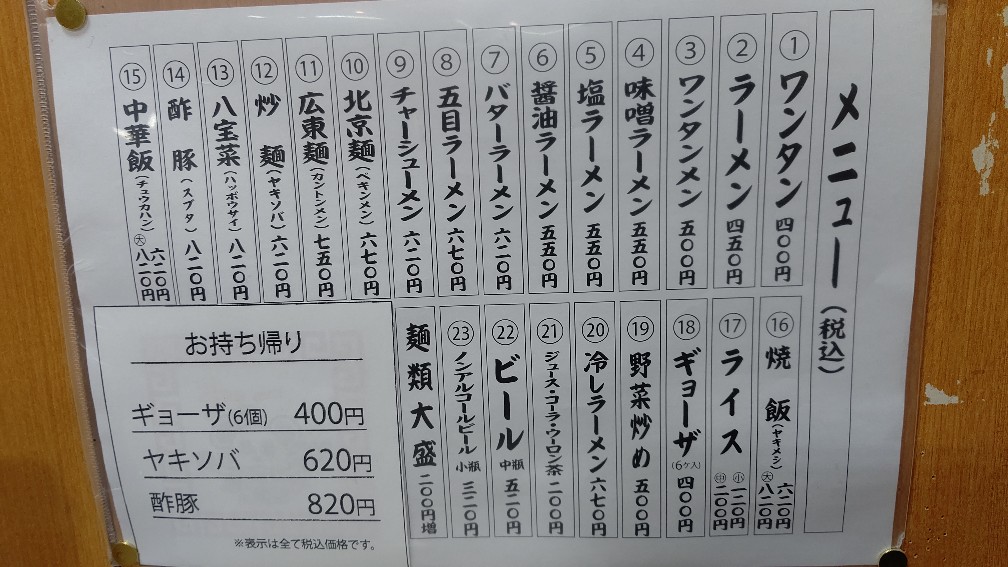 メニュー(税込)
①ワンタン 四〇〇円
②ラーメン 四五〇円
③ワンタンメン 五〇〇円
④味噌ラーメン 五五〇円
⑤塩ラーメン 五五〇円
⑥醤油ラーメン 五五〇円
⑦バターラーメン 六二〇円
⑧五目ラーメン 六七〇円
⑨チャーシューメン 六二〇円
⑩北京麺(ペキンメン) 六七〇円
⑪広東麺(カントンメン) 七五〇円
⑫炒麺(ヤキソバ) 六二〇円
⑬八宝菜(ハッポウサイ) 八二〇円
⑭酢豚(スブタ) 八二〇円
⑮中華飯(チュウカハン) 六二〇円 ㊛八二〇円
⑯焼飯(ヤキメシ) 六二〇円 大八二〇円
⑰ライス 小一二〇円 中二〇〇円
⑱ギョーザ(6ケ入) 四〇〇円
⑲野菜炒め 五〇〇円
⑳冷しラーメン 六七〇円
㉑ジュース・コーラ・ウーロン茶 二〇〇円
㉒ビール 中瓶 五二〇円
㉓ノンアルコールビール 小瓶 三二〇円
麺類大盛 二〇〇円増
お持ち帰り
ギョーザ(6個) 400円
ヤキソバ 620円
酢豚 820円
※表示は全て税込価格です。